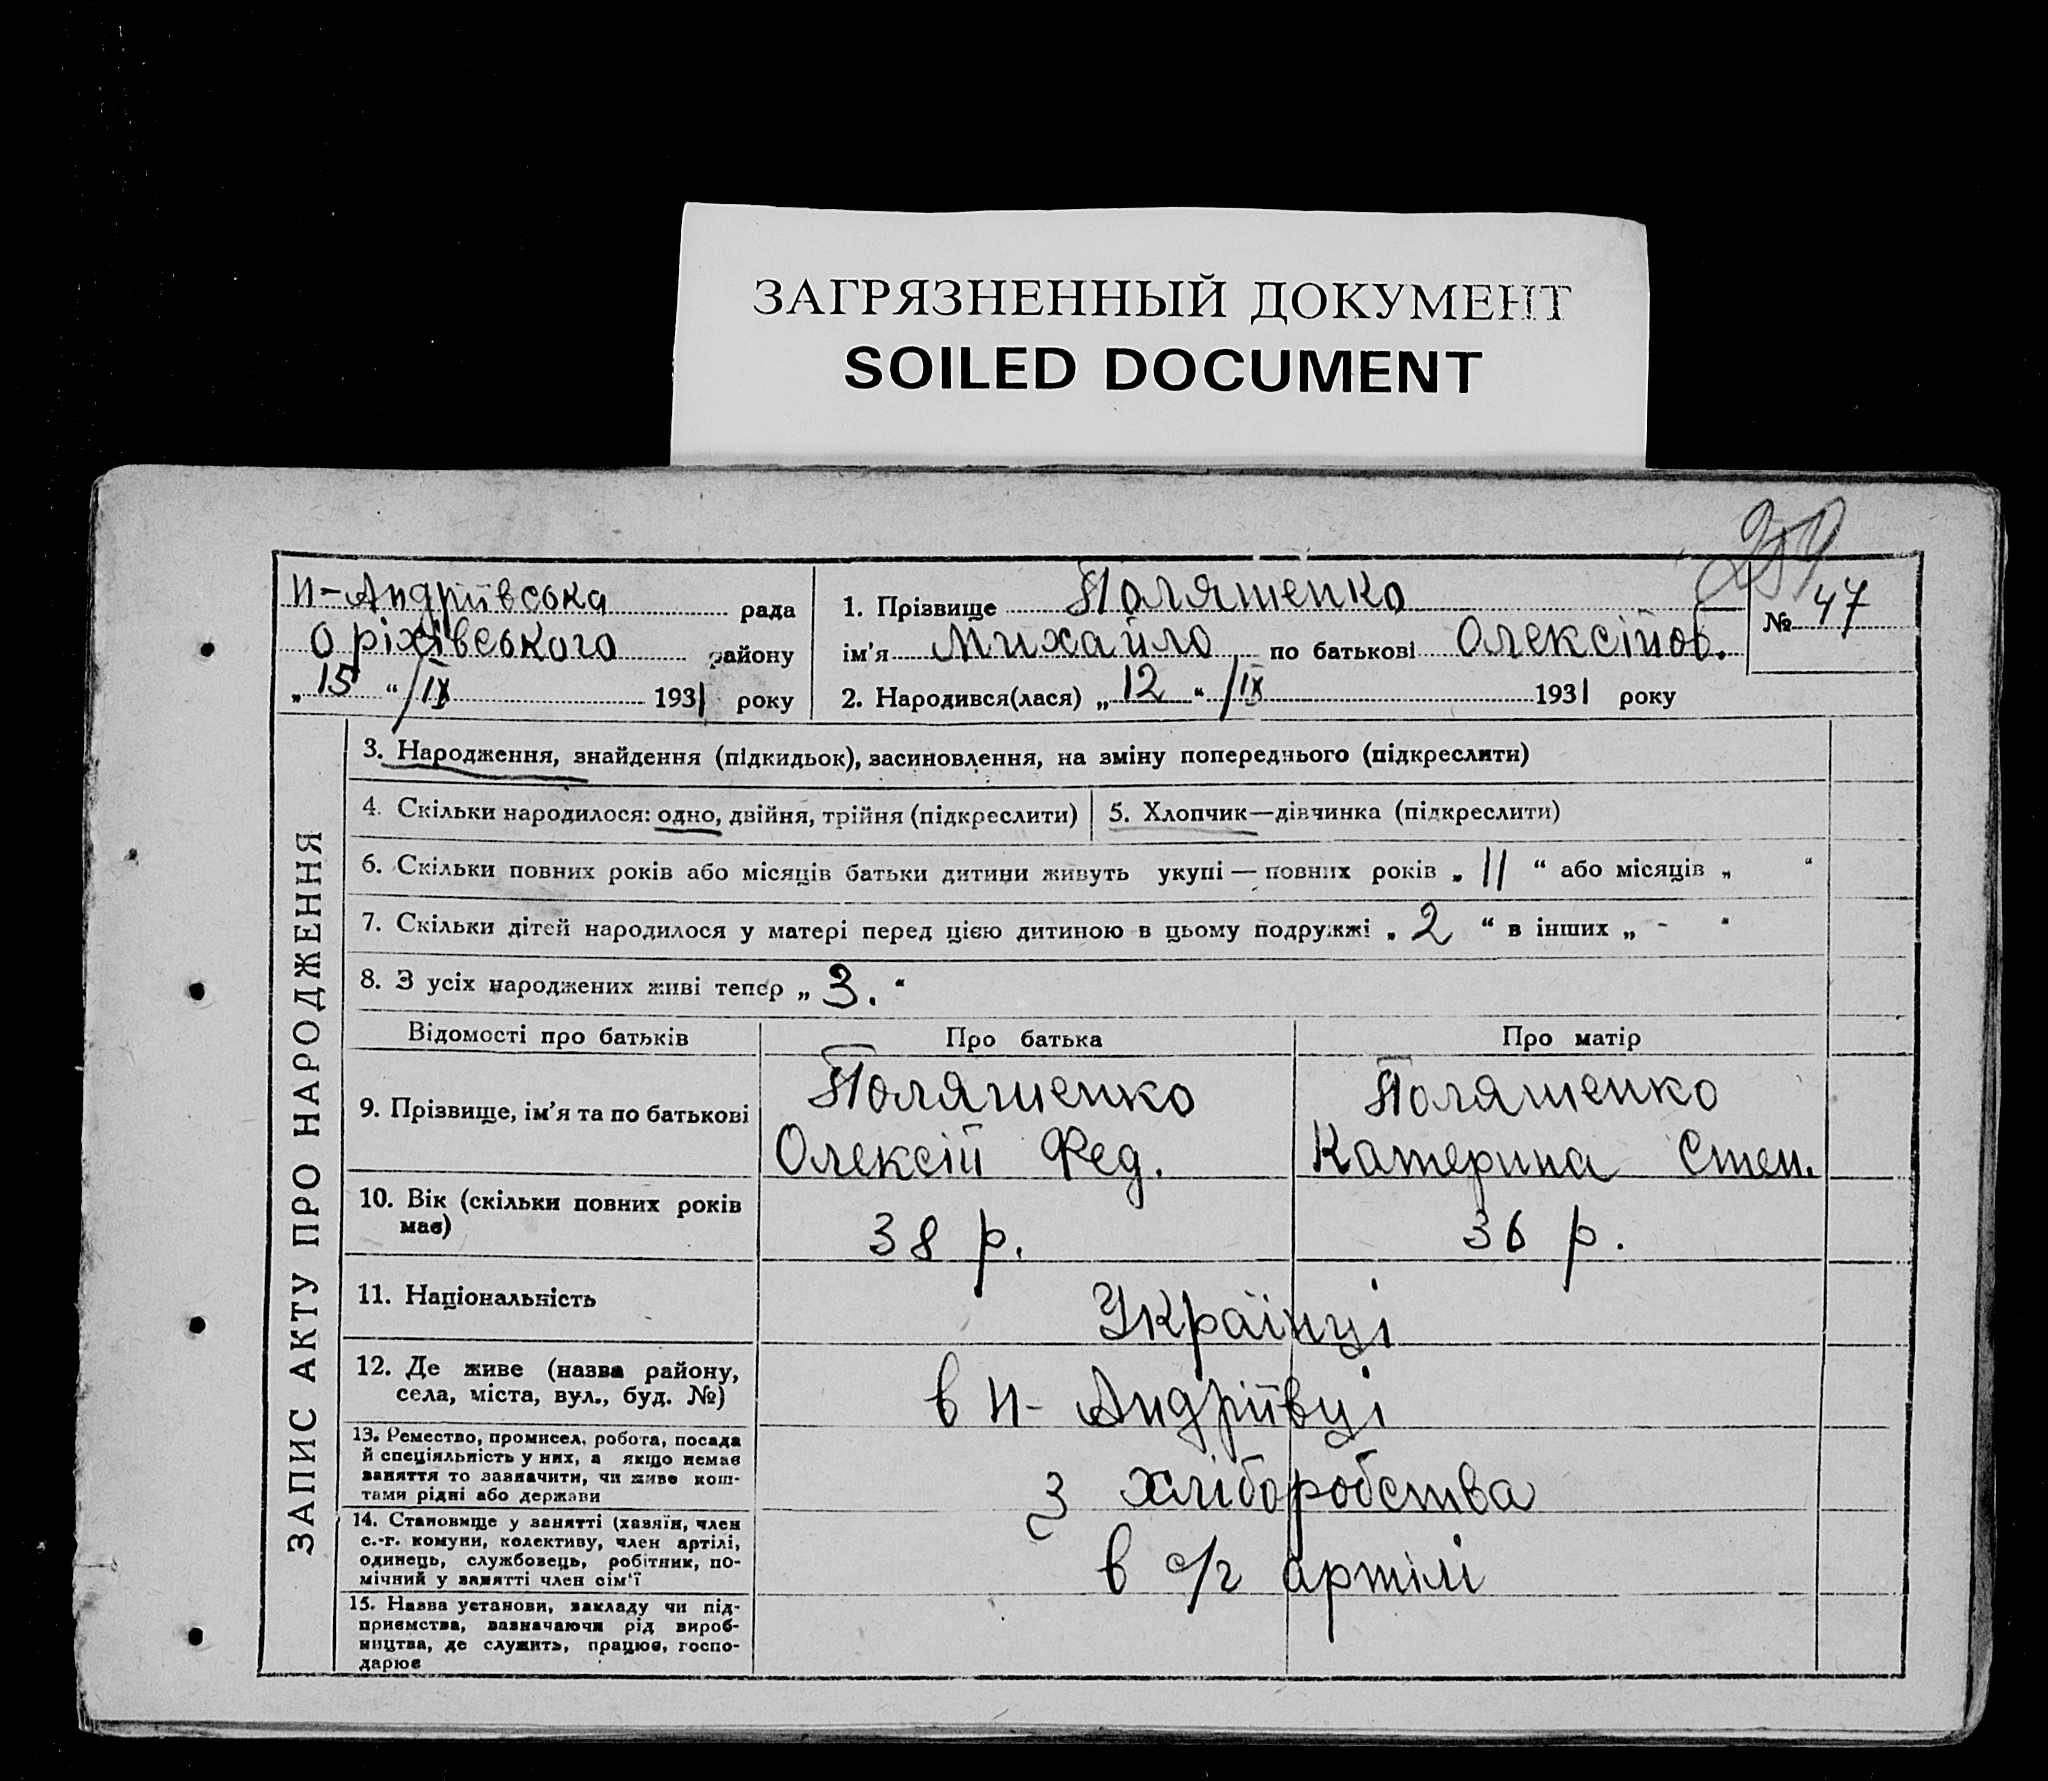 ЗАГРЯЗНЕННЫЙ ДОКУМЕНТ
SOILED DOCUMENT
Н-Андріївська рада
Оріхівського району
„15“/IX 1931 року
1. Прізвище Поляшенко
ім'я Михайло по батькові Олексійов.
2. Народився(лася) „12“ /IX 1931 року
№ 47
ЗАПИС АКТУ ПРО НАРОДЖЕННЯ
3. Народження, знайдення (підкидьок), засиновлення, на зміну попереднього (підкреслити)
4. Скільки народилося: одно, двійня, трійня (підкреслити)
5. Хлопчик—дівчинка (підкреслити)
6. Скільки повних років або місяців батьки дитини живуть укупі — повних років „11“ або місяців „ “
7. Скільки дітей народилося у матері перед цією дитиною в цьому подружжі „2“ в інших „-“
8. З усіх народжених живі тепер „3.“
Відомості про батьків Про батька Про матір
9. Прізвище, ім'я та по батькові
Поляшенко
Олексій Фед.
Поляшенко
Катерина Степ.
10. Вік (скільки повних років
має)
38 р. 36 р.
11. Національність
Українці
12. Де живе (назва району,
села, міста, вул., буд. №)
в Н- Андріївці
13. Ремество, промисел, робота, посада
й спеціяльність у них, а якщо немає
заняття то зазначити, чи живе кош-
тами рідні або держави
З хліборобства
14. Становище у занятті (хазяїн, член
с.-г. комуни, колективу, член артілі,
одинець, службовець, робітник, по-
мічний у занятті член сім'ї
в с/г артілі
15. Назва установи, закладу чи під-
приємства, зазначаючи рід вироб-
ництва, де служить, працює, госпо-
дарює